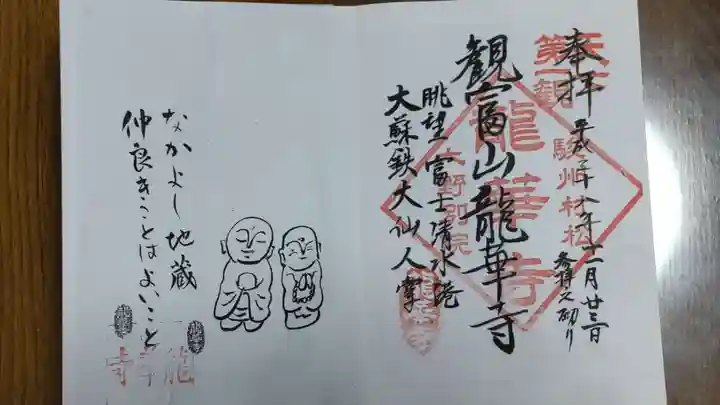 奉拝
平成二十八年十一月廿三日
参拝入初り
観富山龍華寺
眺望富士清水港
大蘇鉄大仙人掌
第一観
駿州村松
龍華寺
なかよし地蔵
仲良きことはよいこと
龍華寺